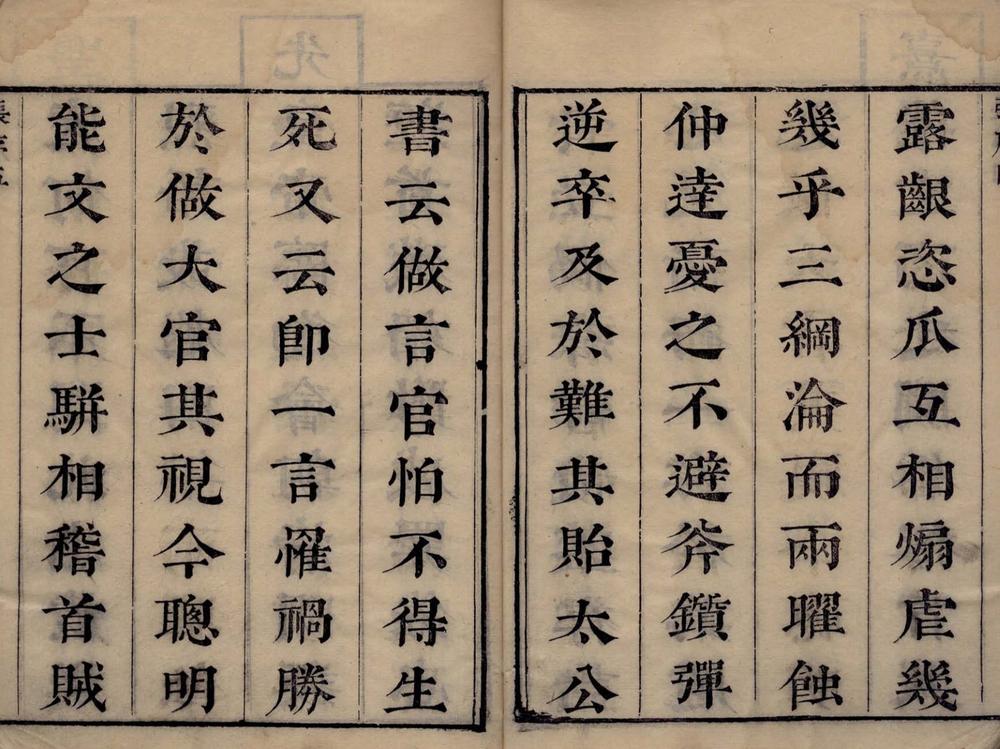 露齦恣爪互相煽虐幾
幾乎三綱淪而兩曜蝕
仲逹憂之不避斧鑕彈
逆卒及於難其貽太公
書云做言官怕不得生
死又云卽一言罹禍勝
於做大官其視今聰明
能文之士駢相稽首賊